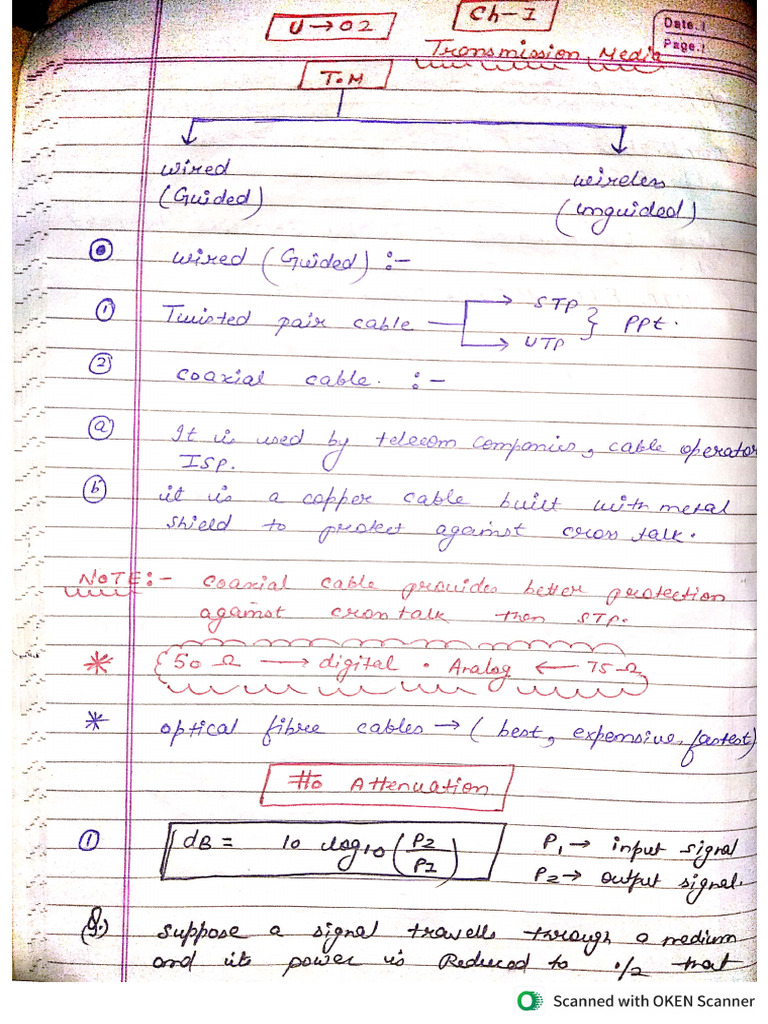 U → 02
Ch - I
Date. 1
Page. 1
Transmission Media
T.M
wired
(Guided)
wireless
(unguided)
wired (Guided) :-
① Twisted pair cable → STP } PPt.
→ UTP
② coaxial cable. :-
ⓐ It is used by telecom companies, cable operator
ISP.
ⓑ it is a copper cable built with metal
shield to protect against cross talk.
NOTE :- coaxial cable provides better protection
against cross talk then STP.
* 50 Ω → digital . Analog ← 75 Ω
* optical fibre cables → ( best, expensive, fastest)
Attenuation
① dB = 10 log10 (P2/P1) P1 → input signal
P2 → output signal.
Q.) suppose a signal travells through a medium
and its power is Reduced to 1/2 that
Scanned with OKEN Scanner